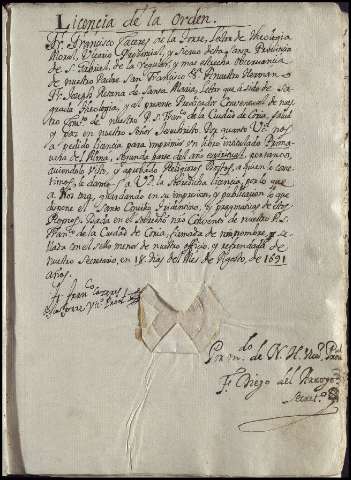 Licencia de la Orden.
Fr. Francisco Caceres de la Torre, Lector de Theologia
Moral, Vicario Provincial, y Siervo desta Santa Provincia
de S. Gabriel, de la Regular, y mas estrecha observancia
de nuestro Padre San Francisco &c. A nuestro Hermano
Fr. Joseph de Santa Maria, Letor que à sido de Sa-
grada Theologia, y al presente Predicador Conventual de nues-
tro Convto. de nuestro P. S. Franco. de la Ciudad de Coria, Salud
y paz en nuestro Señor Jesuchristo. Por quanto V. C. nos
a pedido licencia para imprimir un libro intitulado Prima-
vera del Alma, segunda parte del año espiritual, por tanto,
aviendolo visto, y aprobado Religiosos Doctos, a quien le come-
timos, le damos a V. C. la bendicion, y licencia, por lo que
a Nos toca, guardando en su impression, y publicacion lo que
dispone el Santo Concilio Tridentino, y pragmaticas de estos
Reynos. Dada en el dicho nro Convento de nuestro P. S.
Franco. de la Ciudad de Coria, firmada de nro nombre, y se-
llada con el sello menor de nuestro officio, y refrendada de
nuestro Secretario, en 18. dias del Mes de Agosto, de 1691
años.
Fr. Franco. Caceres
de la Torre Vico. Provl.
Por mdo. de N. H. Vico. Provl.
Fr. Diego del Arroyo
Secreto.